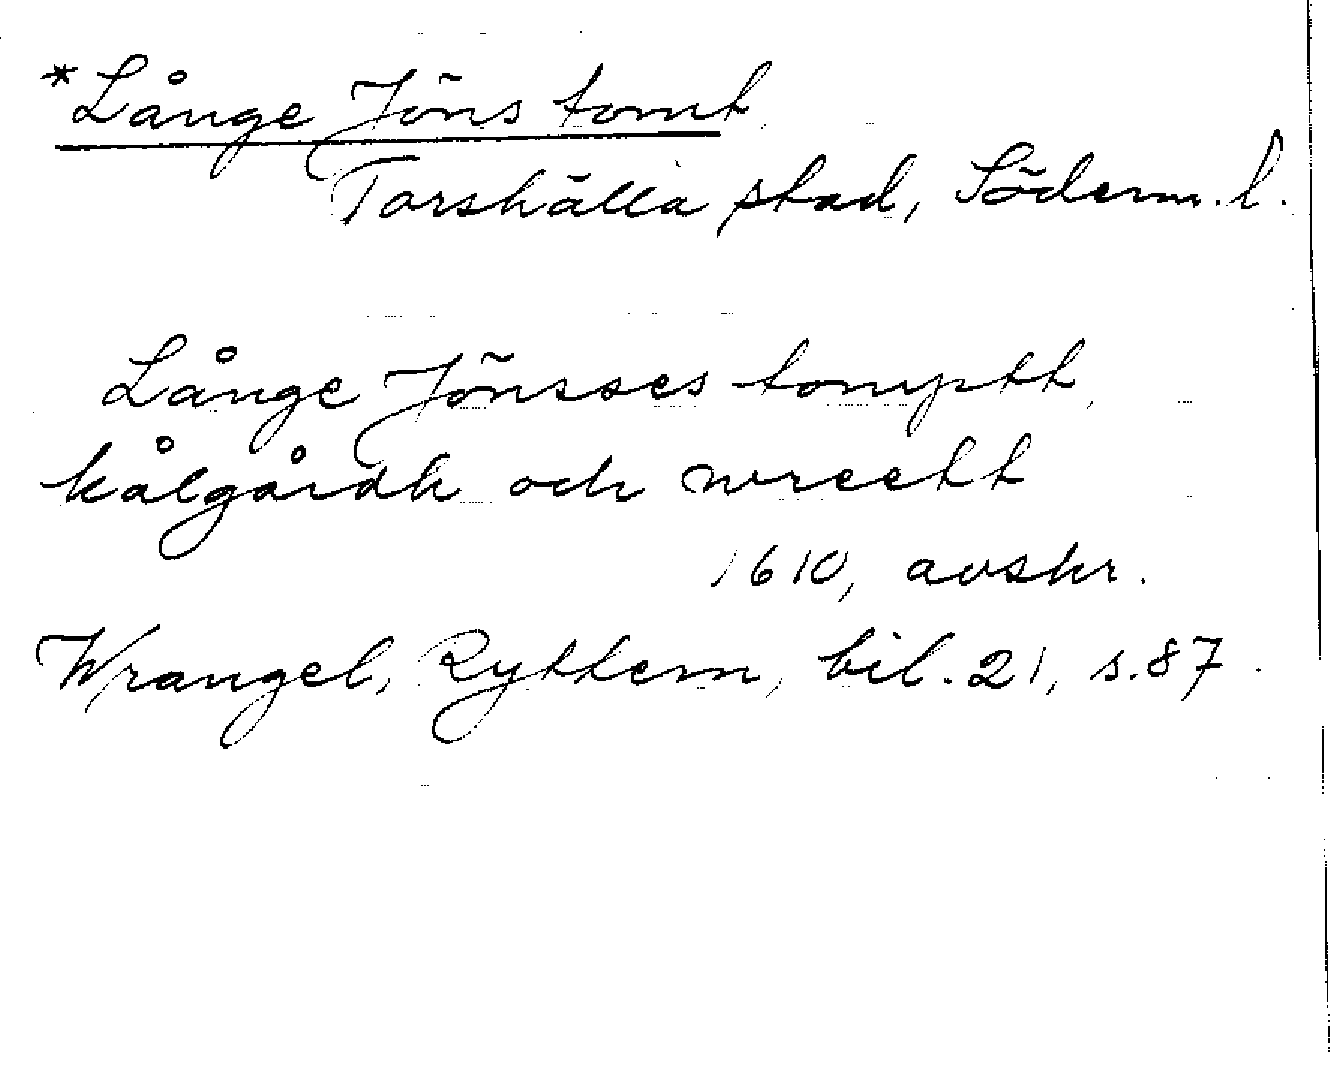 *Långe Jöns tomt
Torshälla stad, Söderm. l.
Långe Jönsses tomptt,
kålgårdh och wreett
1610, avskr.
Wrangel, Ryttern, bil. 21, s. 87.